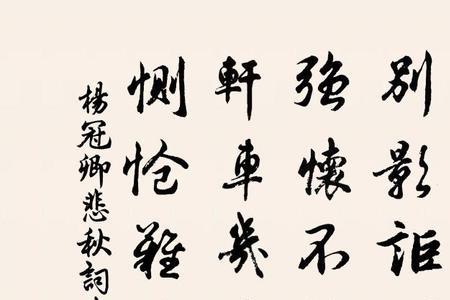 別影詎
強懷不
軒車幾
惻愴難
楊冠卿悲秋詞